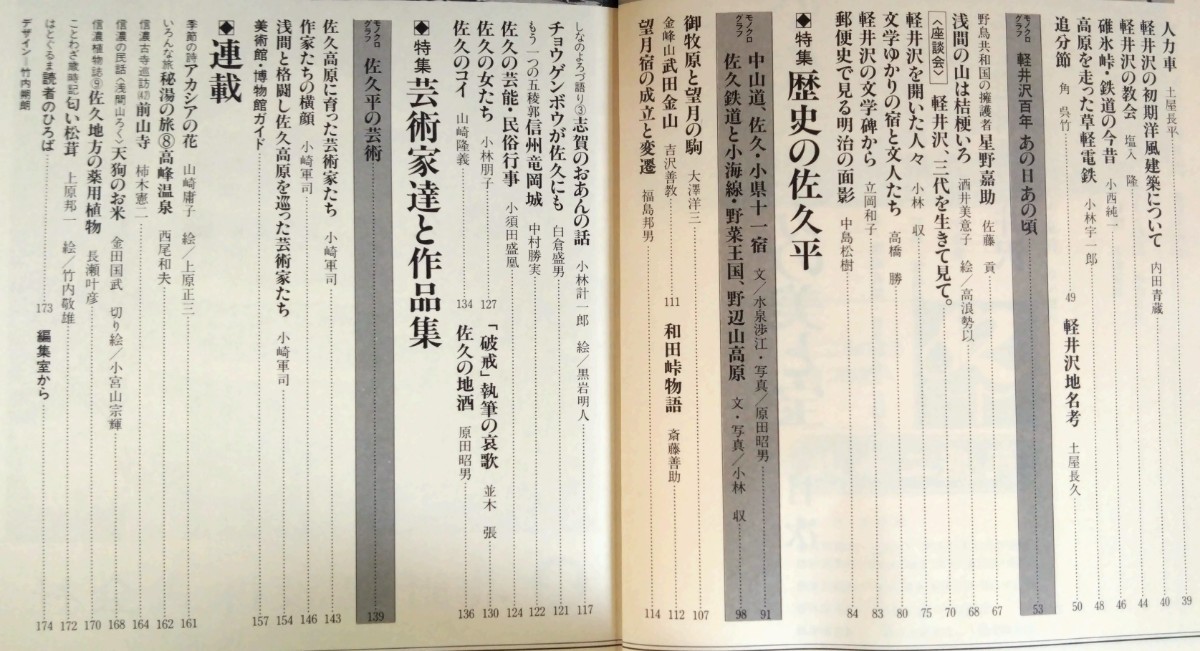 人力車 土屋長平 39
軽井沢の初期洋風建築について 内田青蔵 40
軽井沢の教会 塩入 隆 44
碓氷峠・鉄道の今昔 小西純一 46
高原を走った草軽電鉄 小林宇一郎 48
追分節 角 呉竹 49
軽井沢地名考 土屋長久 50
モノクログラフ 軽井沢百年 あの日 あの頃 53
野鳥共和国の擁護者 星野嘉助 佐藤 貢 67
浅間の山は桔梗いろ 酒井美意子 絵/高浪勢以 68
〈座談会〉 軽井沢、三代を生きて見て。 70
軽井沢を開いた人々 小林 収 75
文学ゆかりの宿と文人たち 高橋 勝 80
軽井沢の文学碑から 立岡和子 83
郵便史で見る明治の面影 中島松樹 84
◆特集 歴史の佐久平
モノクログラフ 中山道、佐久・小県十一宿 文/水泉渉江・写真/原田昭男 91
佐久鉄道と小海線・野菜王国、野辺山高原 文・写真/小林 収 98
御牧原と望月の駒 大澤洋三 107
金峰山 武田金山 吉沢善教 112
望月宿の成立と変遷 福島邦男 111
和田峠物語 斎藤善助 114
しなのよろづ語り③ 志賀のおあんの話 小林計一郎 絵/黒岩明人 117
チョウゲンボウが佐久にも 白倉盛男 121
もう一つの五稜郭 信州竜岡城 中村勝実 122
佐久の芸能・民俗行事 小須田盛凰 124
佐久の女たち 小林朋子 127
「破戒」執筆の哀歌 並木 張 130
佐久のコイ 山崎隆義 134
佐久の地酒 原田昭男 136
◆特集 芸術家達と作品集
モノクログラフ 佐久平の芸術 139
佐久高原に育った芸術家たち 小崎軍司 143
作家たちの横顔 小崎軍司 146
浅間と格闘し佐久高原を巡った芸術家たち 小崎軍司 154
美術館・博物館ガイド 157
◆連載
季節の詩 アカシアの花 山崎庸子 絵/上原正三 161
いろんな旅 秘湯の旅⑧高峰温泉 西尾和夫 162
信濃古寺巡訪㊷ 前山寺 柿木憲二 164
信濃の民話〈浅間山ろく〉 天狗のお米 金田国武 切り絵/小宮山宗輝 168
信濃植物誌⑨ 佐久地方の薬用植物 長瀬叶彦 170
ことわざ歳時記 匂い松茸 上原邦一 絵/竹内敬雄 172
はとぐるま 読者のひろば 173
編集室から 174
デザイン=竹内